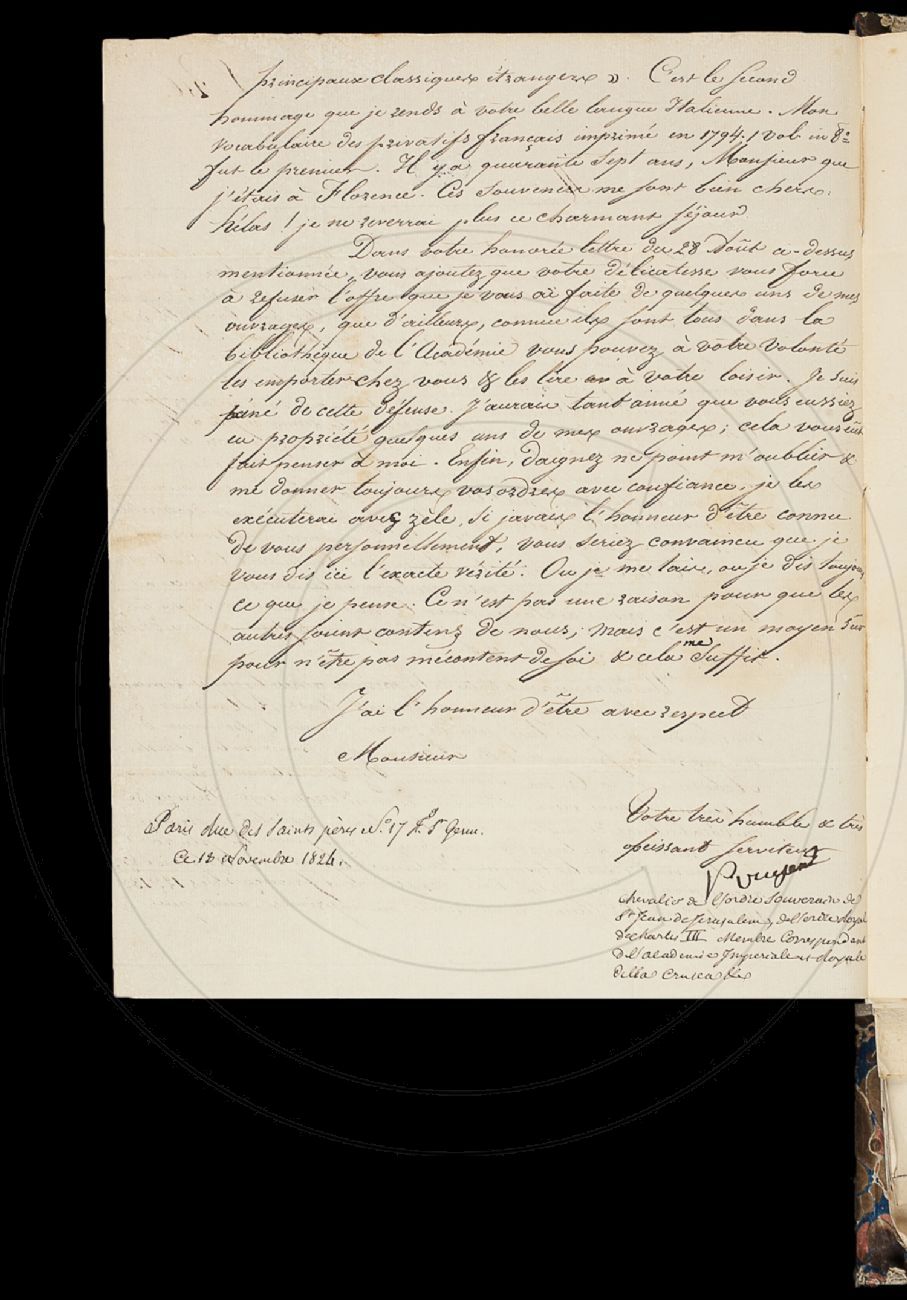 principaux classiques étrangers ». C'est le second
hommage que je rends à votre belle langue Italienne. Mon
vocabulaire des privatifs français imprimé en 1794. 1 vol. in 8º
fut le premier. Il y a quarante sept ans, Monsieur que
j'étais à Florence. Ces souvenirs me sont bien chers.
hélas ! je ne reverrai plus ce charmant séjour.
Dans votre honorée lettre du 28 Août ci-dessus
mentionnée, vous ajoutez que votre délicatesse vous force
à refuser l'offre que je vous ai faite de quelques uns de mes
ouvrages, que d'ailleurs, comme ils sont tous dans la
bibliothèque de l'Académie vous pouvez à votre volonté
les emporter chez vous & les lire à votre loisir. Je suis
peiné de cette défense. J'aurais tant aimé que vous eussiez
en propriété quelques uns de mes ouvrages; cela vous eût
fait penser à moi. Enfin, daignez ne point m'oublier &
me donner toujours vos ordres avec confiance. je les
exécuterai avec zèle. Si j'avais l'honneur d'être connu
de vous personnellement, vous seriez convaincu que je
vous dis ici l'exacte vérité. Ou je me tais, ou je dis toujours
ce que je pense. Ce n'est pas une raison pour que les
autres soient contens de nous; mais c'est un moyen sûr
pour n'être pas mécontent de soi & cela me suffit.
J'ai l'honneur d'être avec respect
Monsieur
Votre très humble & très
obeissant serviteur
Pougens
Paris Rue des Saints pères Nº 17 f. St Germ.
Ce 18 Novembre 1824.
chevalier de l'ordre Souverain de
St Jean de Jerusalem, de l'ordre Royal
de charles III Membre Correspondant
de l'academie Imperiale et Royale
della crusca &c